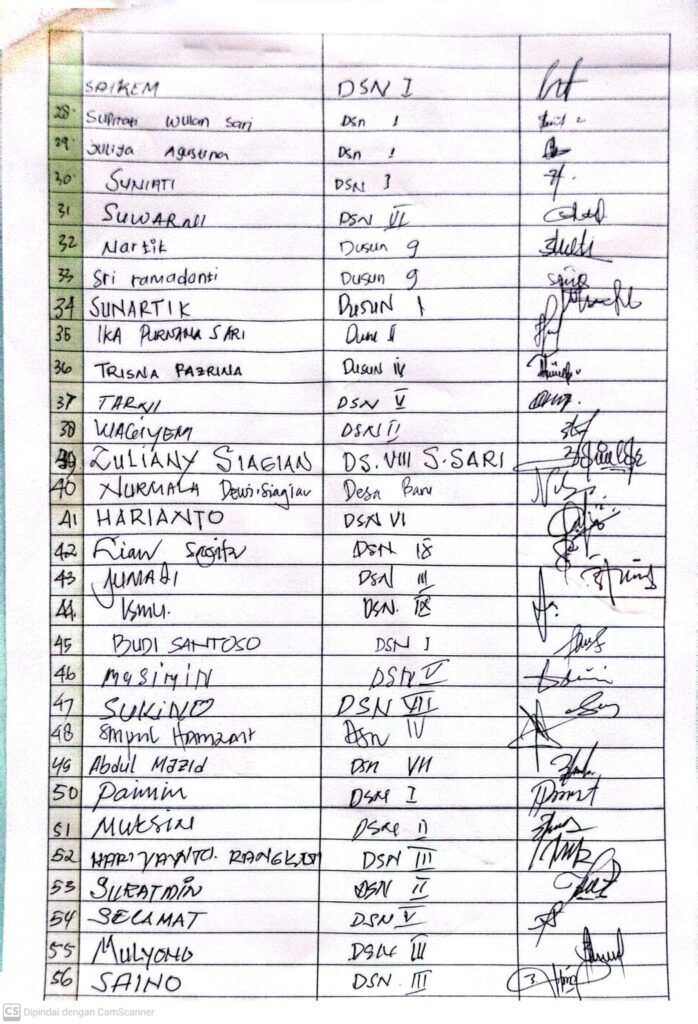 SAIKEM DSN I
28. Supriati Wulan Sari Dsn I
29. Juliya Agustina Dsn I
30. SUNIATI DSN I
31 SUWARNI DSN VI
32 Nartik Dusun 9
33 Sri ramadanti Dusun 9
34 SUNARTIK DUSUN I
35 IKA PURNAMA SARI
36 TRISNA FAZRINA Dusun IV
37 TARNI DSN V
38 WAGIYEM DSN II
39 ZULIANY SIAGIAN DS. VIII S. SARI
40 NURMALA Dewi. Siagian Desa Baru
41 HARIANTO DSN VI
42 DSN IX
43 JUMADI DSN III
44. Ismu. DSN. IX
45 BUDI SANTOSO DSN I
46 Masimin DSN V
47 SUKINO DSN VII
48 DSN IV
49 Abdul Mazid DSN VII
50 Paimin DSN I
51 MUKSIN DSN II
52 HARIYANTO. RANGKUTI DSN III
53 SURATMIN DSN II
54 SELAMAT DSN V
55 MULYONO DSN III
56 SAINO DSN. III
CS Dipindai dengan CamScanner